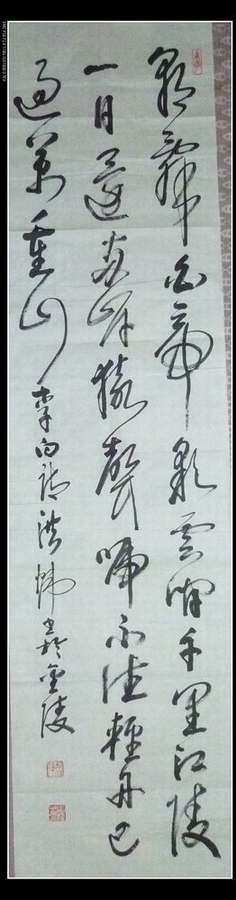 朝辭白帝彩雲間千里江陵
一日還兩岸猿聲啼不住輕舟已
過萬重山 李白詩 洪 書於金陵